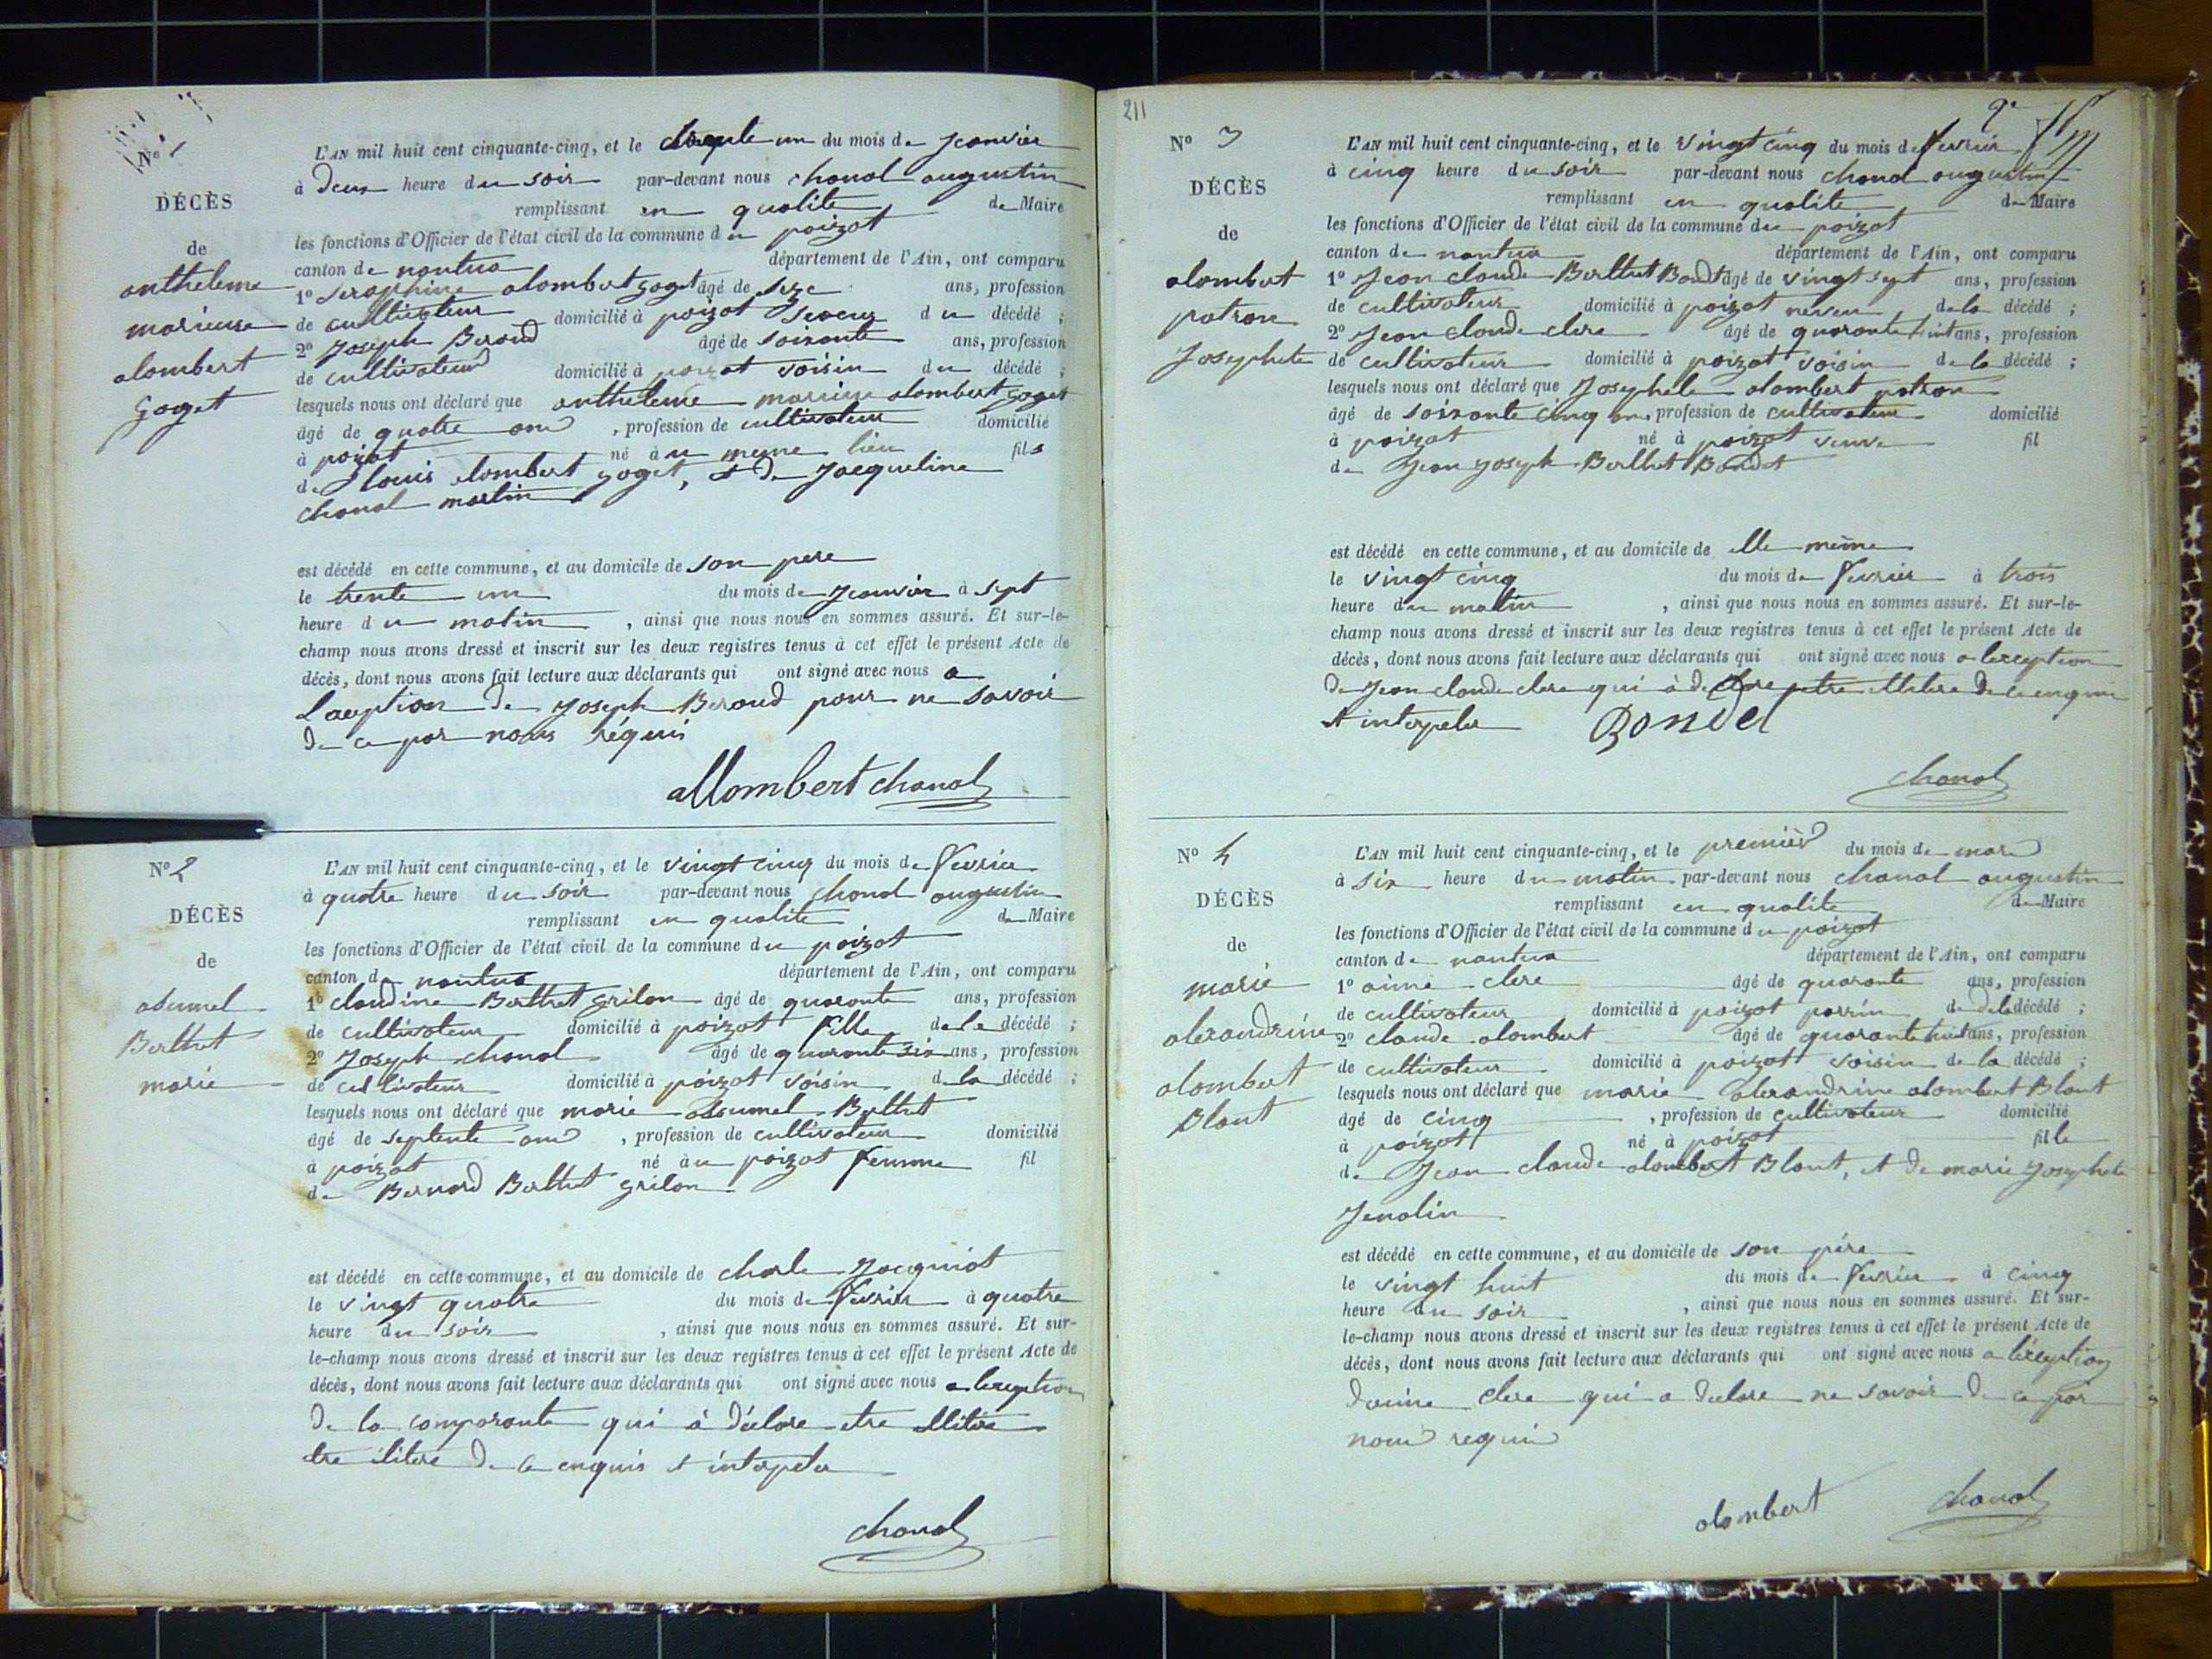 No 1
DÉCÈS
de
antheleme
marieuse
alombert
goget
L'AN mil huit cent cinquante-cinq, et le trente un du mois de Jeanvier
à deux heure du soir par-devant nous chanal augustin
remplissant en qualite de Maire
les fonctions d'Officier de l'état civil de la commune du poizat
canton de nantua département de l'Ain, ont comparu
1º Seraphine alombert goget âgé de seze ans, profession
de cultivateur domicilié à poizat Seoeur du décédé ;
2º Joseph Beroud âgé de Soixante ans, profession
de cultivateur domicilié à poizat voisin du décédé ;
lesquels nous ont déclaré que antheleme alombert goget
âgé de quatre ans , profession de cultivateur domicilié
à poizat né au meme lieu fils
de louis alombert goget, et de Jacqueline
chanal martin
est décédé en cette commune, et au domicile de son pere
le trente un du mois de Jeanvier à sept
heure du matin , ainsi que nous nous en sommes assuré. Et sur-le-
champ nous avons dressé et inscrit sur les deux registres tenus à cet effet le présent Acte de
décès, dont nous avons fait lecture aux déclarants qui ont signé avec nous a
Laception de Joseph Beroud pour ne savoir
de ce par nous réquis
allombert chanal
No 2
DÉCÈS
de
adumel
Berthet
marie
L'AN mil huit cent cinquante-cinq, et le vingt cinq du mois de fevrier
à quatre heure du soir par-devant nous chanal augustin
remplissant en qualite de Maire
les fonctions d'Officier de l'état civil de la commune du poizat
canton de nantua département de l'Ain, ont comparu
1º claudine Berthet grilon âgé de quaronte ans, profession
de cultivateur domicilié à poizat fille de la décédé ;
2º Joseph chanal âgé de quaronte six ans, profession
de cultivateur domicilié à poizat voisin de la décédé ;
lesquels nous ont déclaré que marie adumel Berthet
âgé de septente ans , profession de cultivateur domicilié
à poizat né au poizat femme fil
de Bernard Berthet grilon
est décédé en cette commune, et au domicile de charle Jacquiot
le vingt quatre du mois de fevrier à quatre
heure du soir , ainsi que nous nous en sommes assuré. Et sur-
le-champ nous avons dressé et inscrit sur les deux registres tenus à cet effet le présent Acte de
décès, dont nous avons fait lecture aux déclarants qui ont signé avec nous a lexeption
de la comparante qui à déclare etre illitere
etre litere de ce enquis et interpeler
chanal
211
No 3
DÉCÈS
de
alombert
patron
Josephete
L'AN mil huit cent cinquante-cinq, et le vingt cinq du mois de fevrier
à cinq heure du soir par-devant nous chanal augustin
remplissant en qualite de Maire
les fonctions d'Officier de l'état civil de la commune du poizat
canton de nantua département de l'Ain, ont comparu
1º Jean claude Berthet Bondet âgé de vingt sept ans, profession
de cultivateur domicilié à poizat neveu de la décédé ;
2º Jean claude clere âgé de quaronte huit ans, profession
de cultivateur domicilié à poizat voisin de la décédé ;
lesquels nous ont déclaré que Josephete alombert patron
âgé de soixonte cinq ans profession de cultivateur domicilié
à poizat né à poizat veuve fil
de Jean Joseph Berthet Bondet
est décédé en cette commune, et au domicile de elle même
le vingt cinq du mois de fevrier à trois
heure du matin , ainsi que nous nous en sommes assuré. Et sur-le-
champ nous avons dressé et inscrit sur les deux registres tenus à cet effet le présent Acte de
décès, dont nous avons fait lecture aux déclarants qui ont signé avec nous a lexeption
de Jean claude clere qui à declare etre illitere de ce enquis
et interpeler Bondet
chanal
No 4
DÉCÈS
de
marie
alexandrine
alombert
Blant
L'AN mil huit cent cinquante-cinq, et le premier du mois de mars
à six heure du matin par-devant nous chanal augustin
remplissant en qualite de Maire
les fonctions d'Officier de l'état civil de la commune du poizat
canton de nantua département de l'Ain, ont comparu
1º aimé clere âgé de quaronte ans, profession
de cultivateur domicilié à poizat de la décédé ;
2º claude alombert âgé de quaronte huit ans, profession
de cultivateur domicilié à poizat voisin de la décédé ;
lesquels nous ont déclaré que marie alexandrine alombert Blant
âgé de cinq , profession de cultivateur domicilié
à poizat né à poizat fille
de Jean claude alombert Blant, et de marie Josephete
Jenolin
est décédé en cette commune, et au domicile de son père
le vingt huit du mois de fevrier à cinq
heure du soir , ainsi que nous nous en sommes assuré. Et sur-
le-champ nous avons dressé et inscrit sur les deux registres tenus à cet effet le présent Acte de
décès, dont nous avons fait lecture aux déclarants qui ont signé avec nous a léxeption
daime clere qui a declare ne savoir de ce par
nous requis
alombert chanal